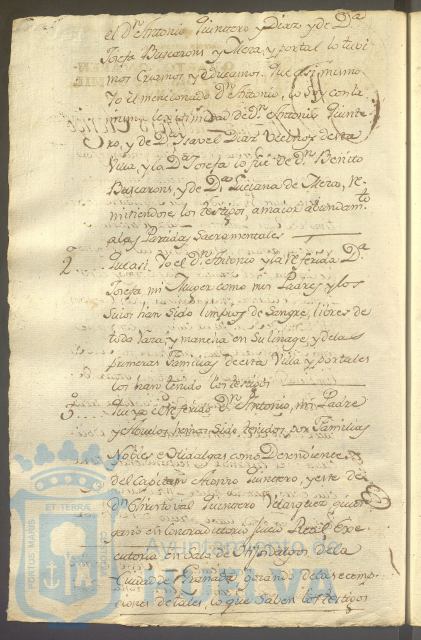 el Dn. Antonio Quintero y Diaz y de Da.
Josefa Buscarons y Mera, y por tal lo tubi-
mos Criamos y educamos. Que asi mismo
Yo el mencionado Dn. Antonio, lo soy con la
misma lexitimidad de Dn. Antonio Quinte-
ro, y de Da. Isavel Diaz Vecinos de esta
Villa, y la Da. Josefa lo fue de Dn. Benito
Buscarons, y de Da. Luciana de Mera, re-
mitiendose los testigos, a maior abundamto.
a las Partidas Sacramentales
2 Que asi Yo el Dn. Antonio y la referida Da.
Josefa mi Muger como mis Padres y los
Suios han sido limpios de Sangre, libres de
toda raza y mancha en su linage, y de las
primeras Familias de esta Villa y por tales
los han tenido los testigos
3 Que yo el referido Dn. Antonio, mi Padre
y Abuelos hemos sido tenidos por Familias
Nobles e Hidalgas como Decendientes
del Capitan Alonso Quintero, y este de
Dn. Christoval Quintero Velazquez que
gano en Contradictorio Juicio Real Exe-
cutoria en Sala de Hijosdalgos de la
Ciudad de Granada, gozando de las exemp-
ciones de tales, lo que saben los testigos
ET TERRAE
PORTUS MARIS
Ayuntamiento de
HUELVA